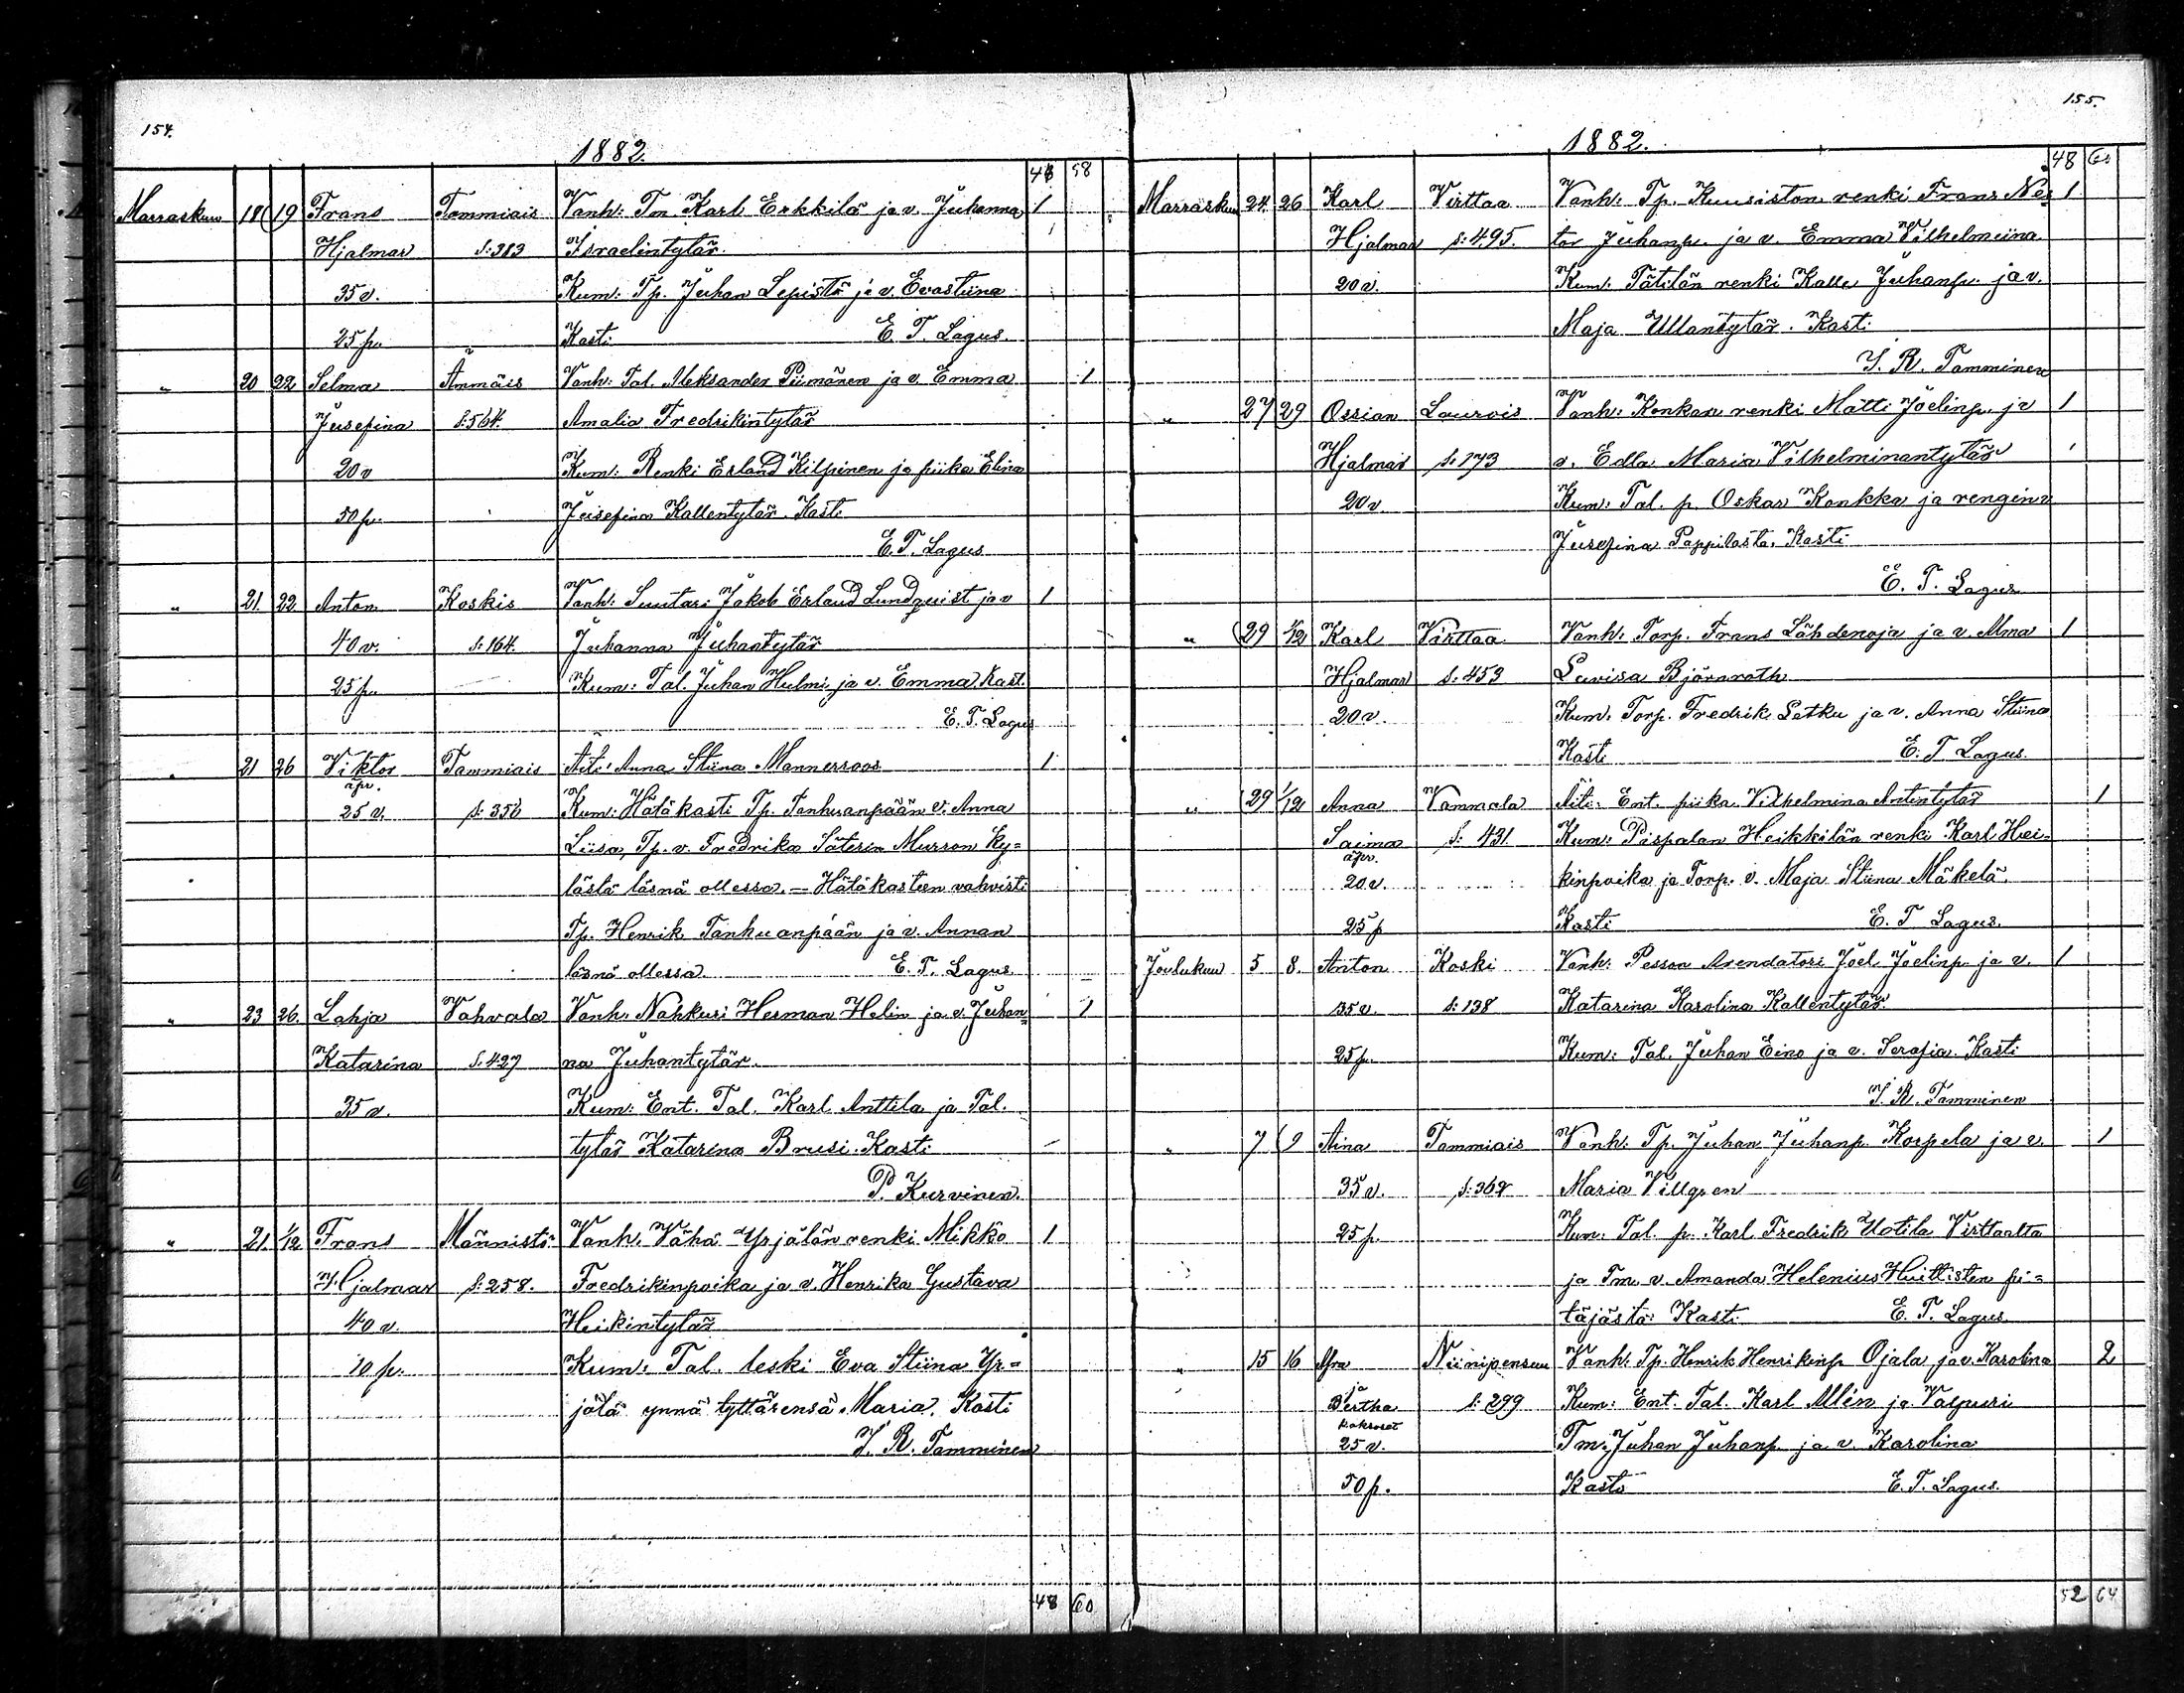 154.
1882.
48 58
Marraskuu 18 19 Frans Tammiais Vanh: Tm Karl Erkkilä ja v. Juhanna 1
Hjalmar s: 383 Israelintytär
35 v. Kum: Tp. Juhan Lepistö ja v. Evastiina
25 p. Kasti E. T. Lagus.
" 20 22 Selma Ämmäis Vanh: Tal. Aleksander Piimänen ja v. Emma 1
Jusefina s: 564. Amalia Fredrikintytär
20 v Kum: Renki Erland Kilpinen ja piika Elina
50 p. Jusefina Kallentytär. Kasti
E. T. Lagus
" 21. 22 Anton Koskis Vanh: Suutari Jakob Erland Lundquist ja v 1
40 v. s: 164. Juhanna Juhantytär
25 p. Kum: Tal. Juhan Hulmi ja v. Emma. Kast.
E. T. Lagus
" 21 26 Viktor Tammiais Äiti: Anna Stiina Mannerroos 1
äpr.
25 v. s: 350 Kum: Hätäkasti Tp. Tanhuanpään v. Anna
Liisa, Tp. v. Fredrika Säteren Murron ky=
lästä läsnä ollessa. — Hätäkasteen vahvisti
Tp. Henrik Tanhuanpään ja v. Annan
läsnä ollessa. E. T. Lagus
" 23 26. Lahja Vahvala Vanh: Nahkuri Herman Helin ja v. Juhan= 1
Katarina s: 427 na Juhantytär.
35 v. Kum: Ent. Tal. Karl Anttila ja Tal.
tytär Katarina Brusi. Kasti
P. Kurvinen.
" 21. 1/12 Frans Männistö Vanh: Vähä-Yrjälän renki Mikko 1
Hjalmar s: 258. Fredrikinpoika ja v. Henrika Gustava
40 v. Heikintytär
10 p. Kum: Tal. leski Eva Stiina Yr=
jälä ynnä tyttärensä Maria. Kasti
J. R. Tamminen
48 60
155.
1882.
48 60
Marraskuu 24. 26 Karl Virttaa Vanh: Tp. Kuusiston renki Frans Nes= 1
Hjalmar s: 495. tor Juhanp. ja v. Emma Vilhelmiina.
20 v. Kum: Tätilän renki Kalle Juhanp. ja v.
Maja Ullantytär. Kasti
J. R. Tamminen
" 27 29 Ossian Laurois Vanh: Konkan renki Matti Joelinp. ja 1
Hjalmar s: 173 v. Edla Maria Vilhelminantytär
20 v. Kum: Tal. p. Oskar Konkka ja rengin v
Jusefina Pappilasta. Kasti
E. T. Lagus
" 29 1/12 Karl Virttaa Vanh: Torp. Frans Lähdenoja ja v. Alma 1
Hjalmar s: 453 Lovisa Björnroth
20 v. Kum. Torp. Fredrik Letku ja v. Anna Stiina
Kasti E. T Lagus.
" 29 1/12 Anna Vammala Äiti: Ent. piika Vilhelmina Antintytär 1
Saima s: 431. Kum: Pispalan Heikkilän renki Karl Hei=
äpr.
20 v. kinpoika ja Torp. v. Maja Stiina Mäkelä.
25 p Kasti E. T Lagus.
Joulukuu 5 8. Anton Koski Vanh: Pesson Arendatori Joel Joelinp. ja v. 1
35 v. s: 138 Katarina Karolina Kallentytär.
25 p. Kum: Tal. Juhan Eino ja v. Serafia. Kasti
J. R. Tamminen
" 7 9 Aina Tammiais Vanh: Tp. Juhan Juhanp. Korpela ja v. 1
35 v. s: 362 Maria Villgren
25 p. Kum: Tal. p. Karl Fredrik Uotila Virttaalta
ja Tm. v. Amanda Helenius Huittisten pi=
täjästä. Kasti E. T. Lagus
" 15 16 Niinijensuu Vanh: Tp. Henrik Henrikinp Ojala ja v. Karolina 2
ja
Bertha s: 299 Kum: Ent. Tal. Karl Allén ja Valpuri
kaksoset
25 v. Tm. Juhan Juhanp ja v. Karolina
50 p. Kasti E. T. Lagus.
52 64